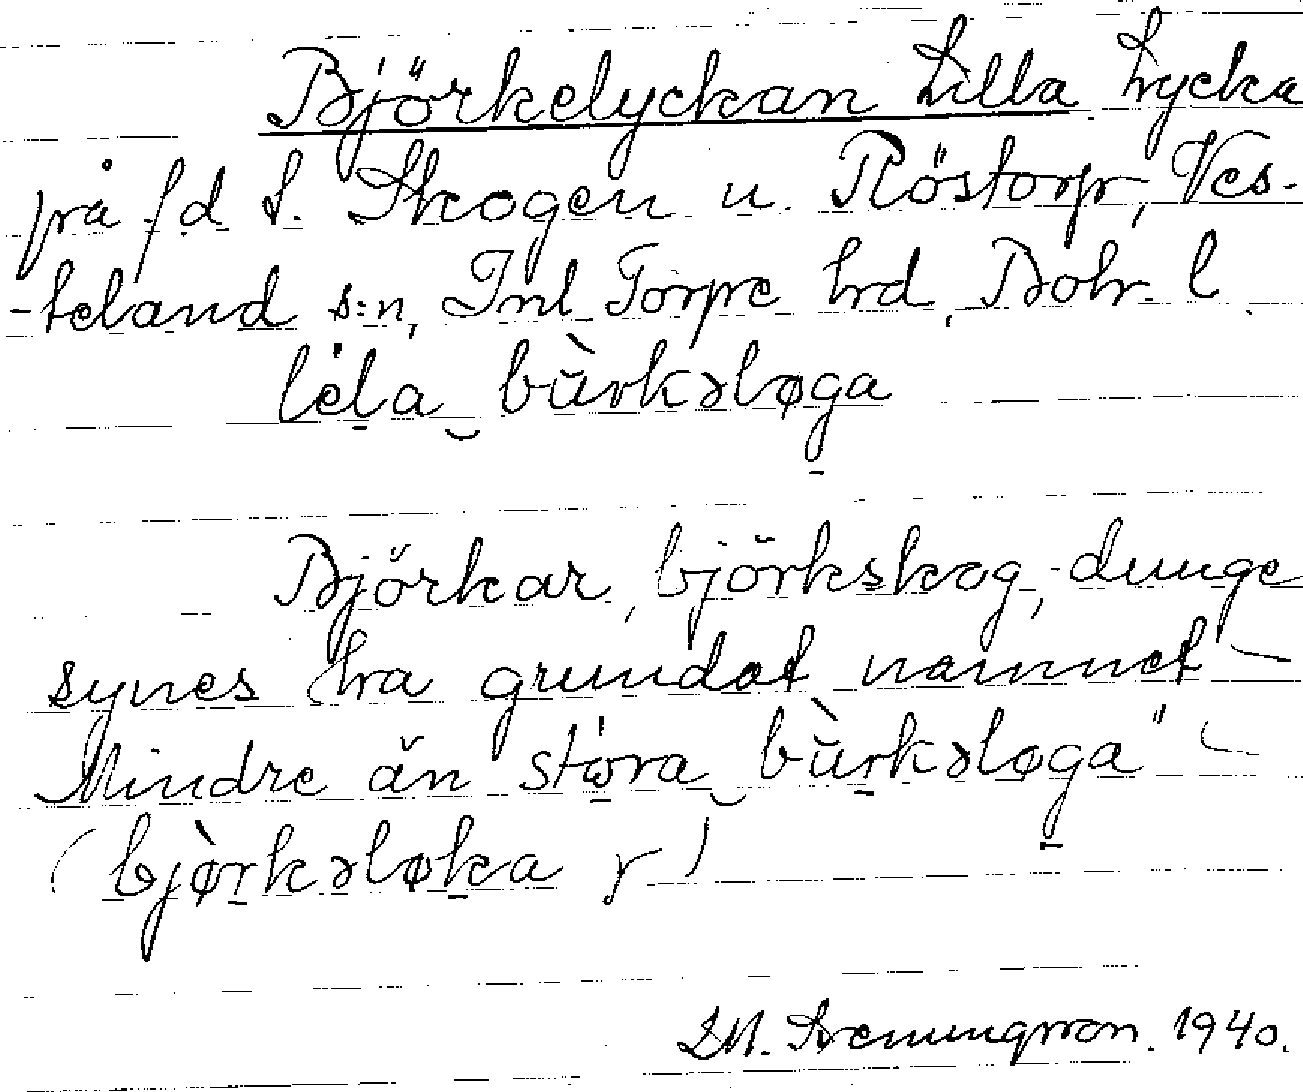 Björkelyckan Lilla Lycka
på fd t. Skogen u. Röstorp, Ves-
-teland s:n, Inl Torpe hrd, Boh. l.
lela bùrkəløga
Björkar, björkskog, -dunge
synes ha grundat namnet –
Mindre än "stora bùrkəløga" –
(bjørkəløka y)
1940.